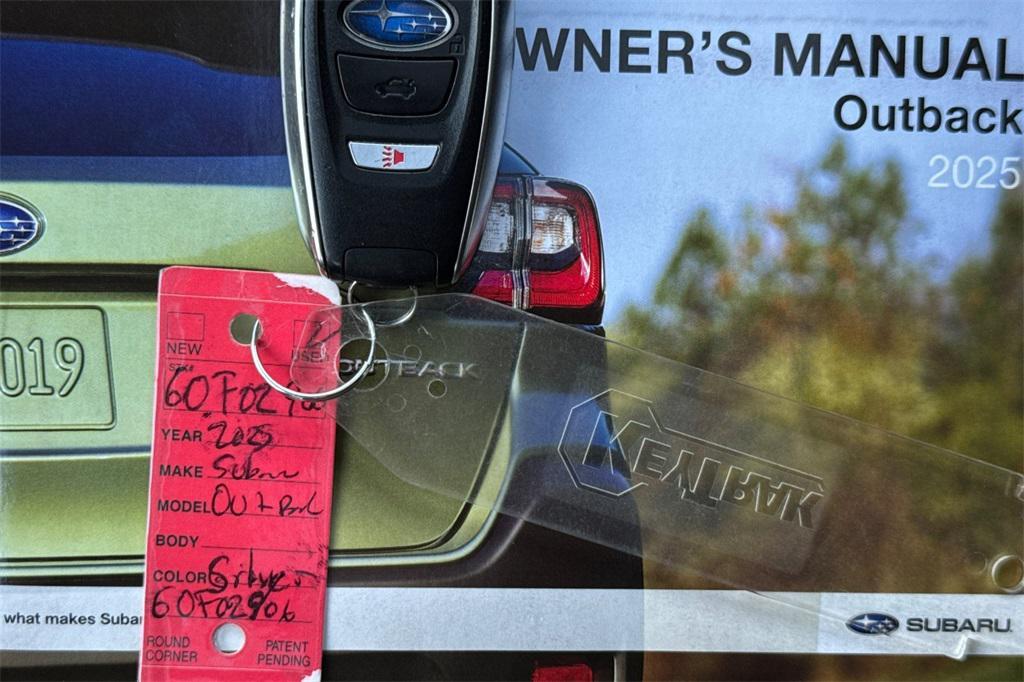 WNER'S MANUAL
Outback
2025
019
OUTBACK
NEW
USED
STK#
60F0290b
YEAR 2025
MAKE Subaru
MODEL OutBack
BODY
COLOR
60F0290b
ROUND CORNER
PATENT PENDING
KEYTRAK
what makes Subar
SUBARU